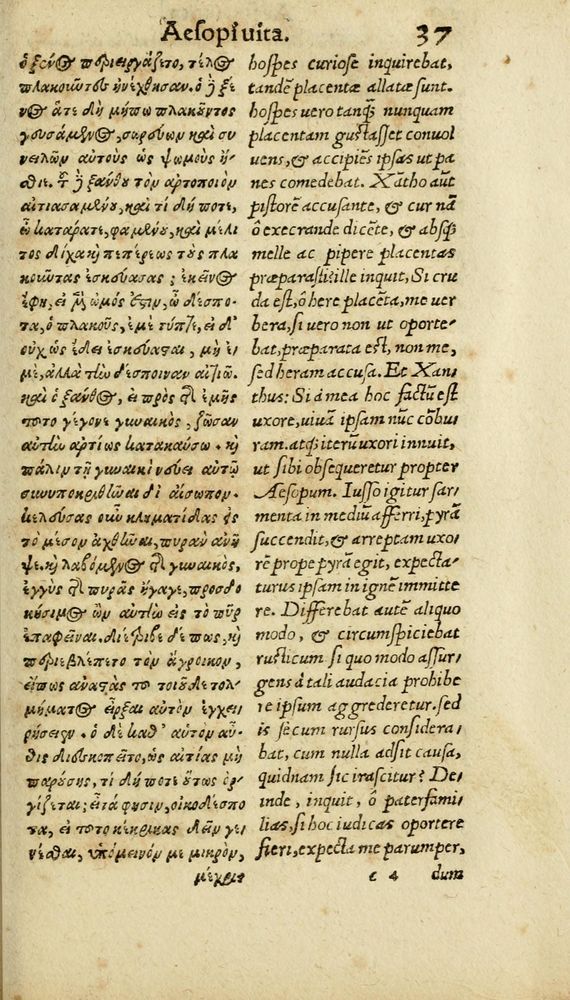 Aesopi uita. 37
ὁ ξένος περιειργάζετο, τέλος
πλακοῦντες ἠνέχθησαν. ὁ δὲ ξέ
νος ἅτε δὴ μήπω πλακοῦντος
γευσάμενος, καὶ συ
νειλῶν αὐτοὺς ὡς ψωμοὺς ἤ-
σθιε. τοῦ δὲ ξάνθου τὸν ἀρτοποιὸν
αἰτιασαμένου, καὶ τί δή ποτε,
ὦ κατάρατε, φαμένου, καὶ μέλι
τος δίχα καὶ πεπέρεως τοὺς πλα
κοῦντας ἐσκεύασας; ἐκεῖνος
ἔφη, εἰ μὲν ὠμός ἐστιν, ὦ δέσπο-
τα, ὁ πλακοῦς, ἐμὲ τύπτε, εἰ δ'
οὐχ ὡς ἔδει ἐσκεύασται, μὴ ἐ-
μὲ, ἀλλὰ τὴν δέσποιναν αἰτιῶ.
καὶ ὁ ξάνθος, εἰ πρὸς τῆς ἐμῆς
τοῦτο γέγονε γυναικὸς, ζῶσαν
αὐτὴν ἀρτίως κατακαύσω. καὶ
πάλιν τῇ γυναικὶ νεύει αὐτῷ
συνυποκριθῆναι δι' αἴσωπον.
κελεύσας οὖν κληματίδας ἐς
τὸ μέσον ἀχθῆναι, πυρὰν ἀνῆ
ψε. καὶ λαβόμενος τῆς γυναικὸς,
ἐγγὺς τῆς πυρᾶς ἤγαγε, προσδό
κησιμος ὢν αὐτὴν εἰς τὸ πῦρ
ἐπαφεῖναι. διέτριβε δέ πως, καὶ
περιεβλέπετο τὸν ἄγροικον,
εἴπως ἀναστὰς τοῦ τοιοῦδε τολ-
μήματος εἶρξαι αὐτὸν ἐγχει-
ρήσειεν. ὁ δὲ καθ' αὑτὸν αὖ-
θις διεσκοπεῖτο, ὡς αἰτίας μὴ
παρούσης, τί δή ποτε οὕτως ὀρ-
γίζεται; εἶτά φησιν, οἰκοδέσπο
τα, εἰ τοῦτο κέκρικας δεῖν γε-
νέσθαι, ὑπόμεινόν με μικρὸν,
μέχρις
hospes curiose inquirebat,
tandẽ placentæ allatæ sunt.
hospes uero tanq̃ nunquam
placentam gustasset conuol
uens, & accipiẽs ipsas ut pa
nes comedebat. Xãtho aũt
pistorẽ accusante, & cur nã
ô execrande dicẽte, & absq;
melle ac pipere placentas
præparasti? ille inquit, Si cru
da est, ô here placẽta, me uer
bera, si uero non ut oporte-
bat, præparata est, non me,
sed heram accusa. Et Xan-
thus: Si à mea hoc factũ est
uxore, uiuã ipsam nũc cõbu
ram. atq; iterũ uxori innuit,
ut sibi obsequeretur propter
Aesopum. Iusso igitur sar-
menta in mediũ afferri, pyrã
succendit, & arreptam uxo-
rẽ prope pyrã egit, expecta-
turus ipsam in ignẽ immitte
re. Differebat autẽ aliquo
modo, & circumspiciebat
rusticum si quo modo assur-
gens à tali audacia prohibe
re ipsum aggrederetur. sed
is secum rursus considera-
bat, cum nulla adsit causa,
quidnam sic irascitur? De-
inde, inquit, ô paterfami-
lias, si hoc iudicas oportere
fieri, expecta me parumper,
c 4 dum